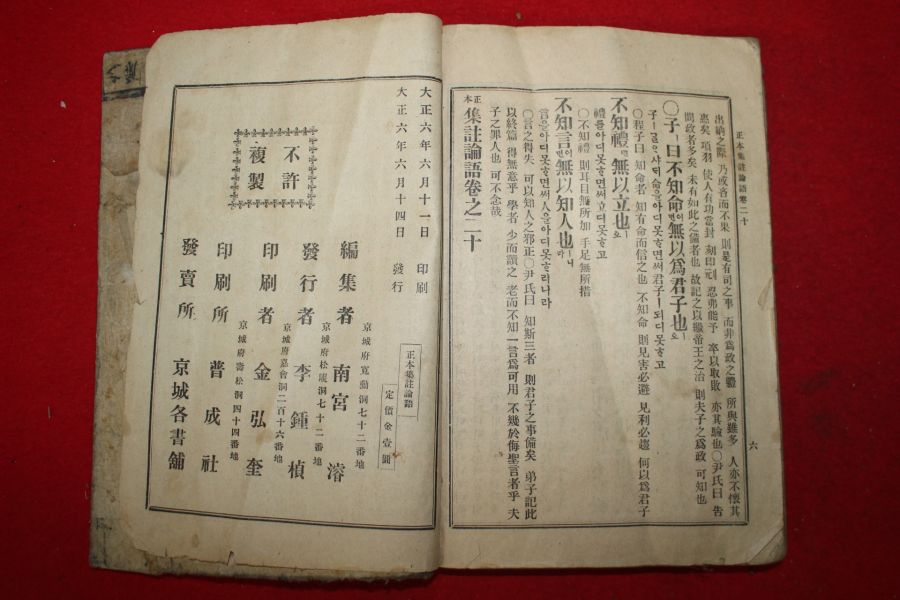 正本集註論語卷二十
六
出納之際 乃或吝而不果 則是有司之事 而非爲政之體 所與雖多 人亦不懷其
惠矣 項羽 使人有功當封 刻印刓 忍弗能予 卒以取敗 亦其驗也○尹氏曰 告
問政者多矣 未有如此之備者也 故記之以繼帝王之治 則夫子之爲政 可知也
○子ㅣ曰不知命이면無以爲君子也ㅣ오
○程子曰 知命者 知有命而信之也 不知命 則見害必避 見利必趨 何以爲君子
不知禮면無以立也ㅣ오
禮를아디못ᄒᆞ면ᄡᅥ立디못ᄒᆞ고
○不知禮 則耳目無所加 手足無所措
不知言이면無以知人也ㅣ니라
言을아디못ᄒᆞ면ᄡᅥ人을아디못ᄒᆞ리니라
○言之得失 可以知人之邪正○尹氏曰 知斯三者 則君子之事備矣 弟子記此
以終篇 得無意乎 學者 少而讀之 老而不知一言爲可用 不幾於侮聖言者乎 夫
子之罪人也 可不念哉
正本集註論語卷之二十
大正六年六月十一日 印刷
大正六年六月十四日 發行
不許
複製
正本集註論語
定價金壹圓
京城府寬勳洞七十二番地
編集者 南宮濬
京城府松峴洞七十二番地
發行者 李鍾楨
京城府嘉會洞二百十六番地
印刷者 金弘奎
京城府壽松洞四十四番地
印刷所 普成社
發賣所 京城各書舖